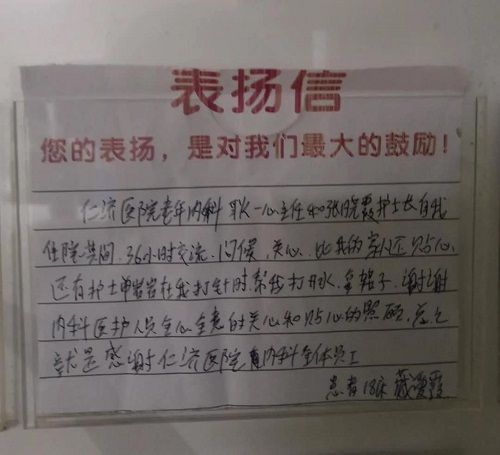 表扬信
您的表扬，是对我们最大的鼓励！
仁济医院老年内科 耿一心主任和张晓霞护士长自我
住院其间.36小时交流.问候.关心.比我的家人还贴心.
还有护士单岩岩在我打针时帮我打开水.拿贴子.谢谢
内科医护人员全心全意的关心和贴心的照顾.总之
就是感谢仁济医院 内科全体员工
患者18床 戴